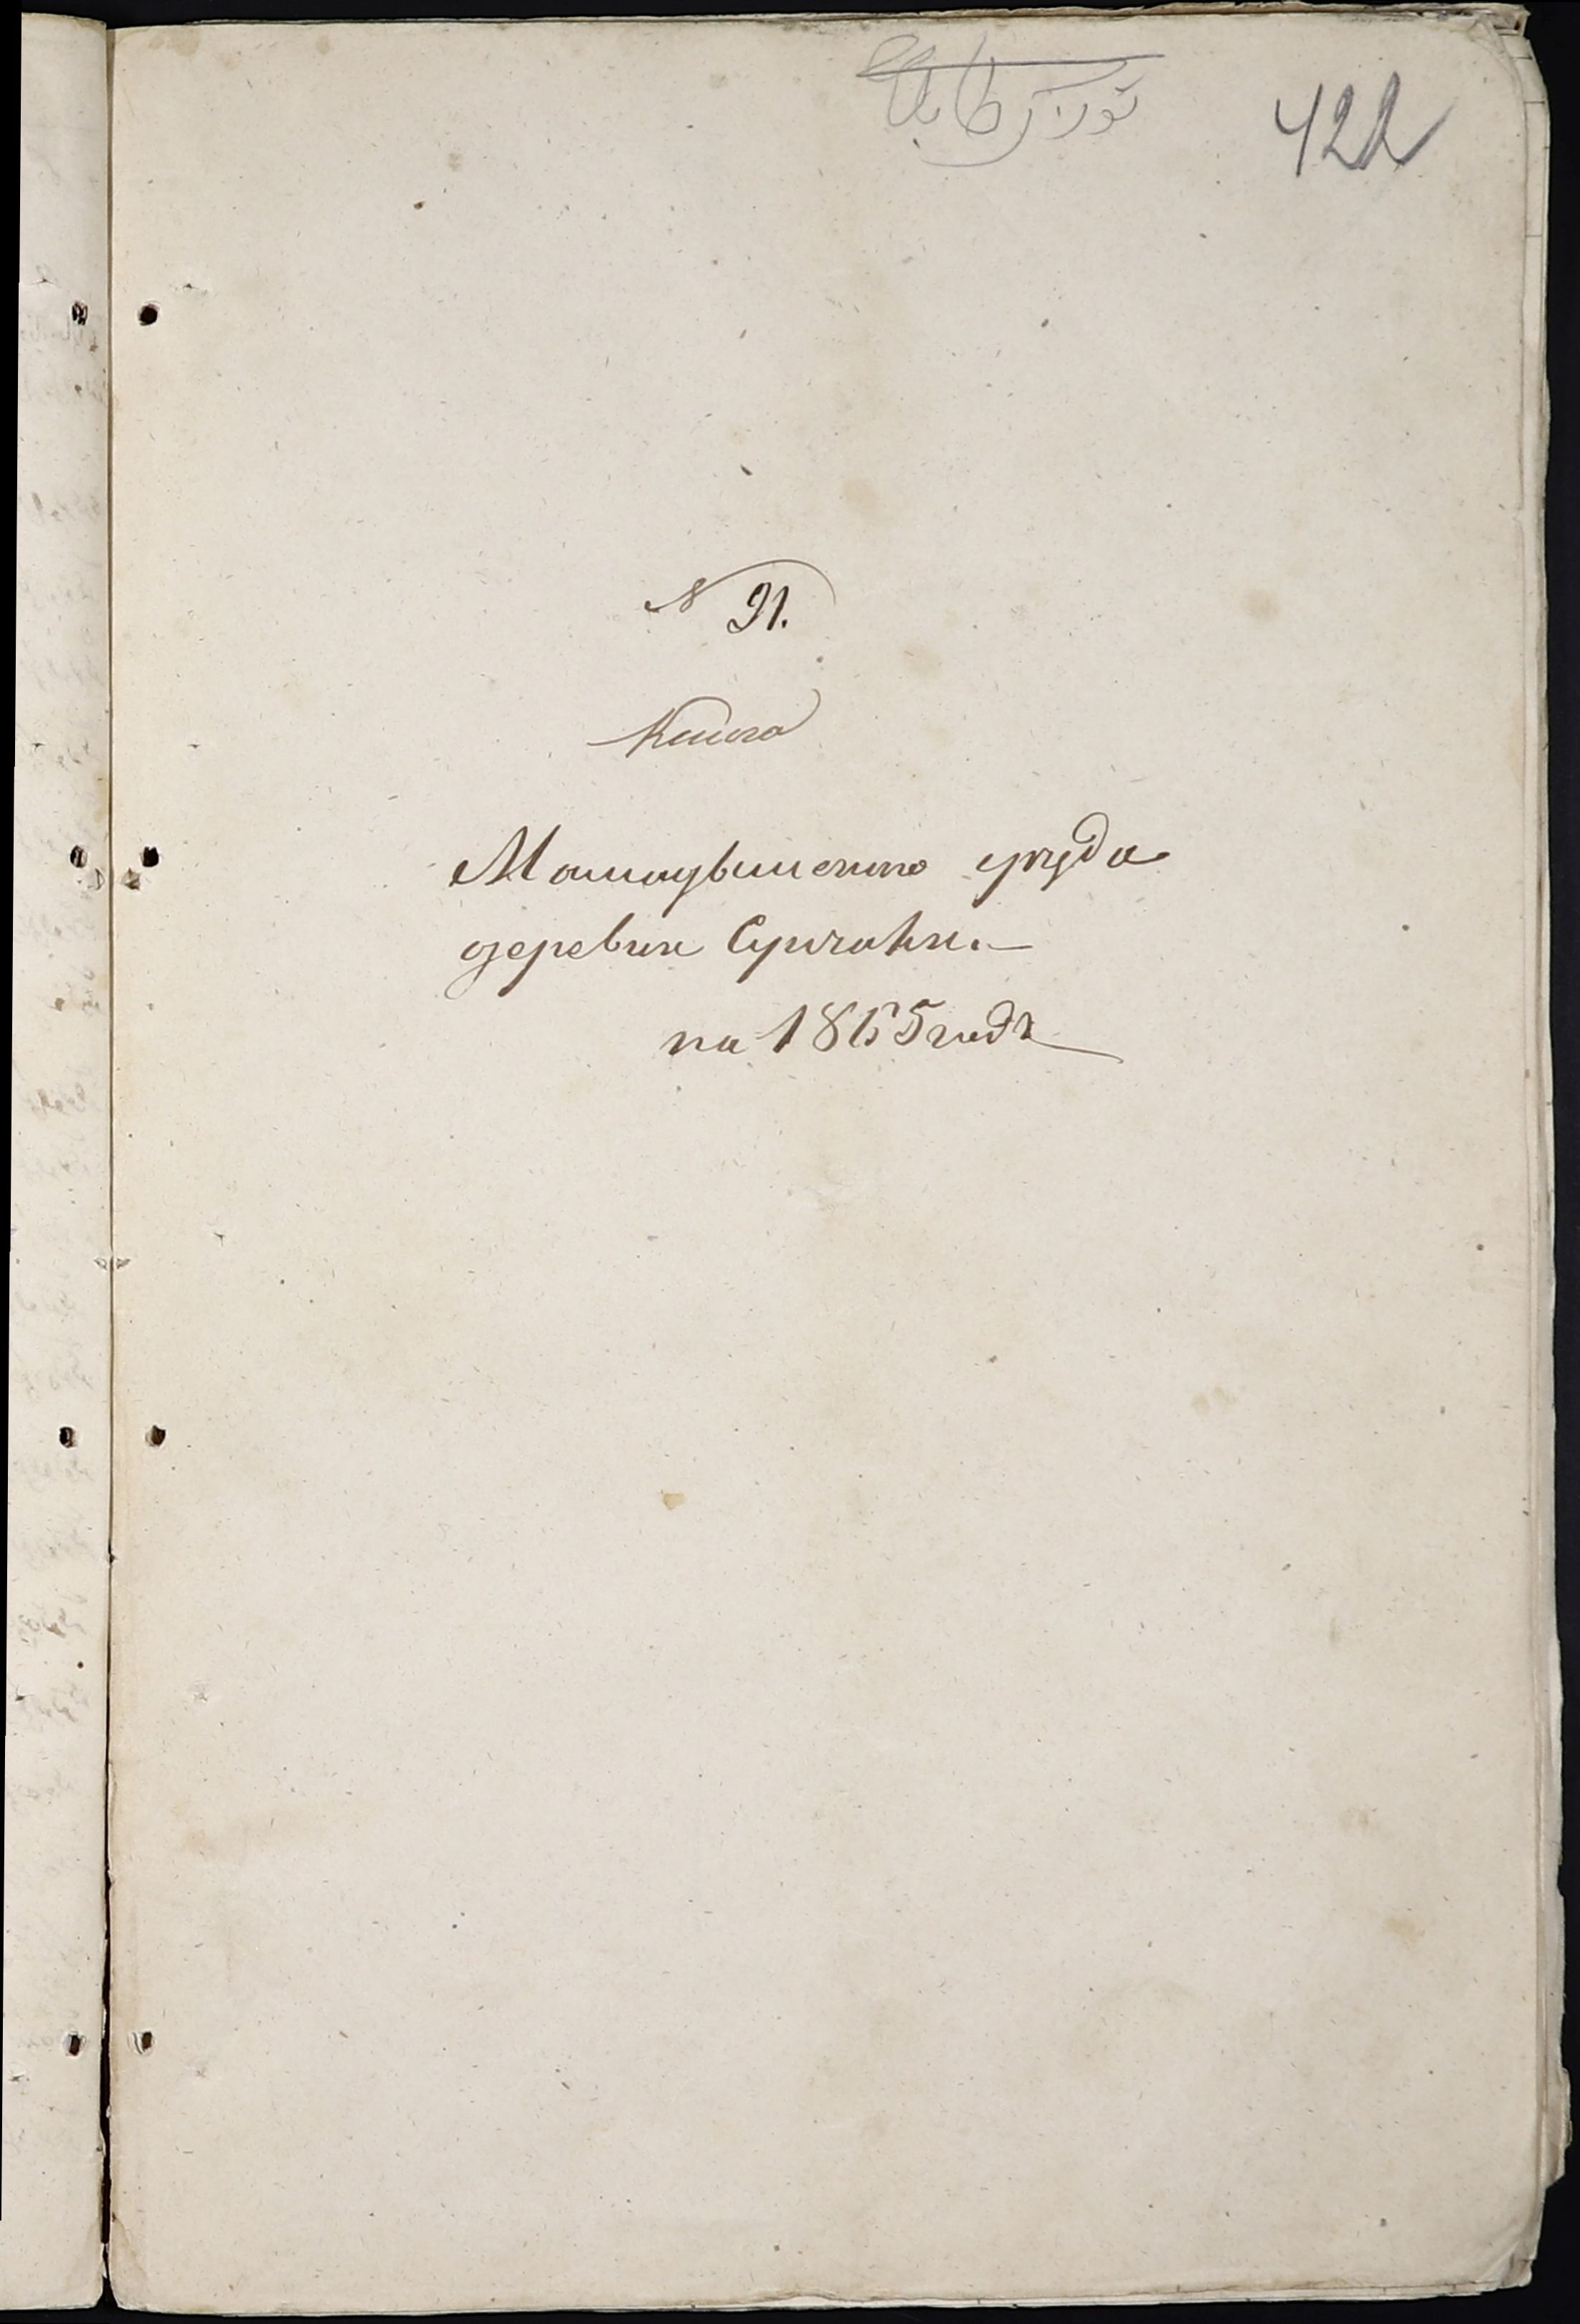 422
N 91.
Книга
Мамадышского уезда
деревни
на 1865 годъ